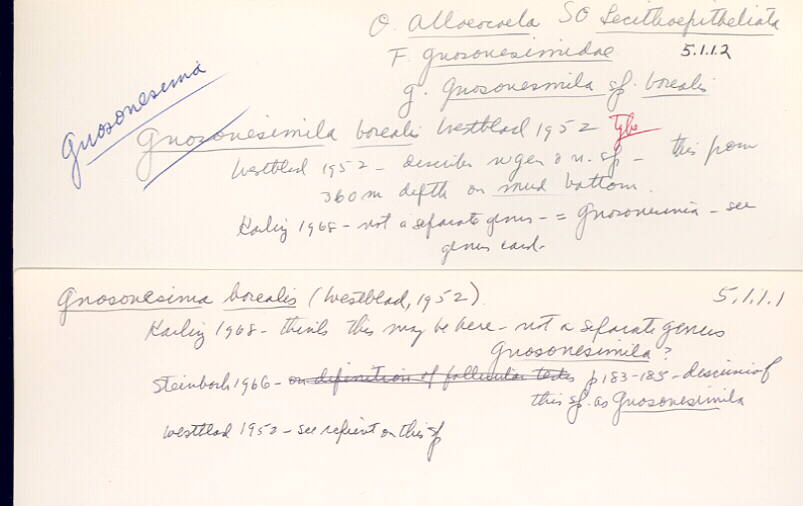 O. Alloeocoela SO Lecithoepitheliata
F. Gnosonesimidae 5.1.1.2
g. Gnosonesmila sp. borealis
Gnosonesima
Gnosonesimila borealis Westblad 1952 Type
Westblad 1952 - describes n. gen & n. sp - this from
360 m depth on mud bottom.
Karling 1968 - not a separate genus - = Gnosonesima - see
genus card.
Gnosonesima borealis (Westblad, 1952). 5.1.1.1
Karling 1968 - thinks this may be here - not a separate genus
Gnosonesimila?
Steinbock 1966 - on definition of follicular testes p 183-185 - discussion of
this sp. as Gnosonesimila
Westblad 1952 - see reprint on this sp